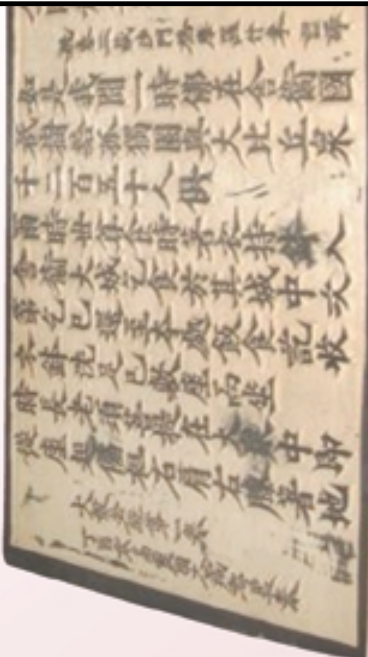 姚秦三藏沙門鳩摩羅什奉 詔譯
如是我聞一時佛在舍衛國
祇樹給孤獨園與大比丘衆
千二百五十人俱
爾時世尊食時著衣持鉢入
舍衛大城乞食於其城中次
第乞已還至本處飯食訖收
衣鉢洗足已敷座而坐
時長老須菩提在大衆中即
從座起偏袒右肩右膝著地